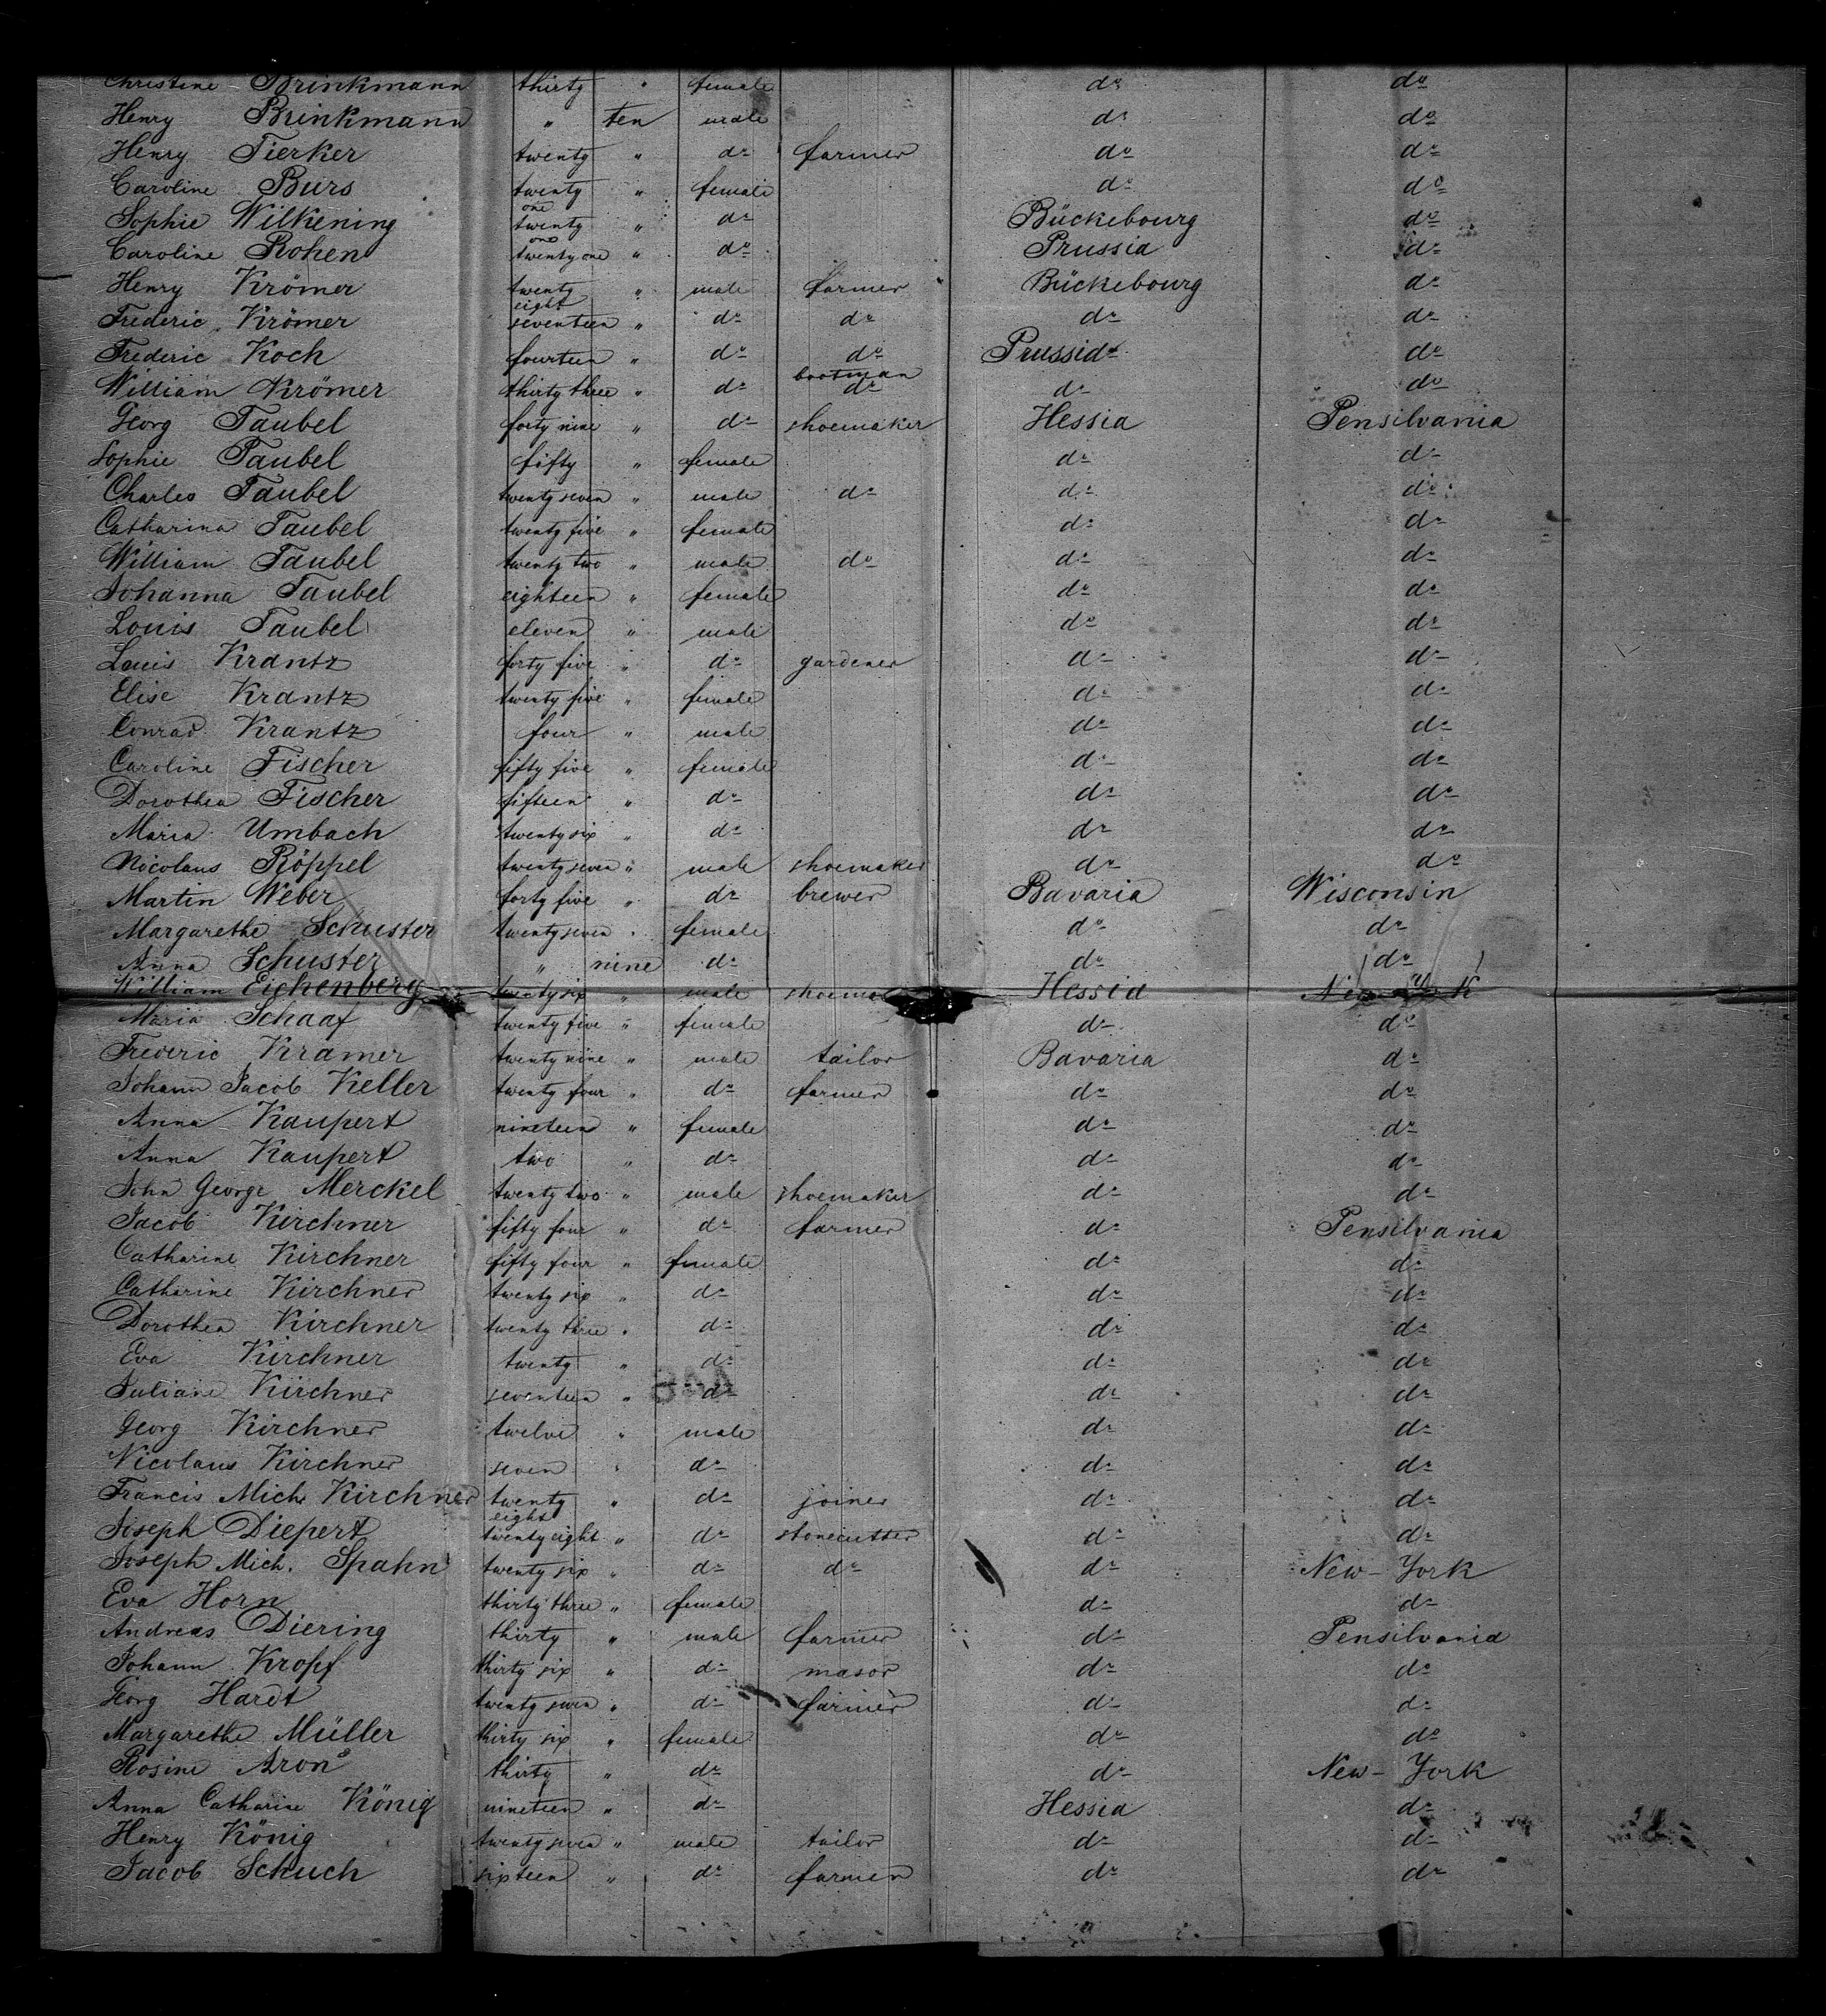 Christine Brinkmann thirty " female do do
Henry Brinkmann " ten male do do
Henry Tierker twenty " do farmer do do
Caroline Burs twenty one " female do do
Sophie Wilkening twenty one " do Bückebourg do
Caroline Rohen twenty one " do Prussia do
Henry Krömer twenty eight " male farmer Bückebourg do
Frederic Krömer seventeen " do do do do
Frederic Koch fourteen " do do Prussia do
William Krömer thirty three " do bootman do do do
Georg Taubel forty nine " do shoemaker Hessia Pensilvania
Sophie Taubel fifty " female do do
Charles Taubel twenty seven " male do do do
Catharina Taubel twenty five " female do do
William Taubel twenty two " male do do do
Johanna Taubel eighteen " female do do
Louis Taubel eleven " male do do
Louis Krantz forty five " do gardener do do
Elise Krantz twenty five " female do do
Conrad Krantz four " male do do
Caroline Fischer fifty five " female do do
Dorothea Fischer fifteen " do do do
Maria Umbach twenty six " do do do
Nicolaus Röppel twenty seven " male shoemaker do do
Martin Weber forty five " do brewer Bavaria Wisconsin
Margarethe Schuster twenty seven " female do do
Anna Schuster " nine do do do
William Eichenberg twenty six " male Hessia New York
Maria Schaaf twenty five " female do do
Frederic Kramer twenty nine " male tailor Bavaria do
Johann Jacob Keller twenty four " do farmer do do
Anna Kaupert nineteen " female do do
Anna Kaupert two " do do do
John George Merckel twenty two " male shoemaker do do
Jacob Kirchner fifty four " do farmer do Pensilvania
Catharine Kirchner fifty four " female do do
Catharine Kirchner twenty six " do do do
Dorothea Kirchner twenty three " do do do
Eva Kirchner twenty " do do do
Juliane Kirchner seventeen " do do do
Georg Kirchner twelve " male do do
Nicolaus Kirchner seven " do do do
Francis Mich. Kirchner twenty eight " do joiner do do
Joseph Diepert twenty eight " do stonecutter do do
Joseph Mich. Spahn twenty six " do do do New-York
Eva Horn thirty three " female do do
Andreas Diering thirty " male farmer do Pensilvania
Johann Kropf thirty six " do mason do do
Georg Hardt twenty seven " do farmer do do
Margarethe Müller thirty six " female do do
Rosine Arons thirty " do do New-York
Anna Catharine König nineteen " do Hessia do
Henry König twenty seven " male tailor do do
Jacob Schuch sixteen " do farmer do do